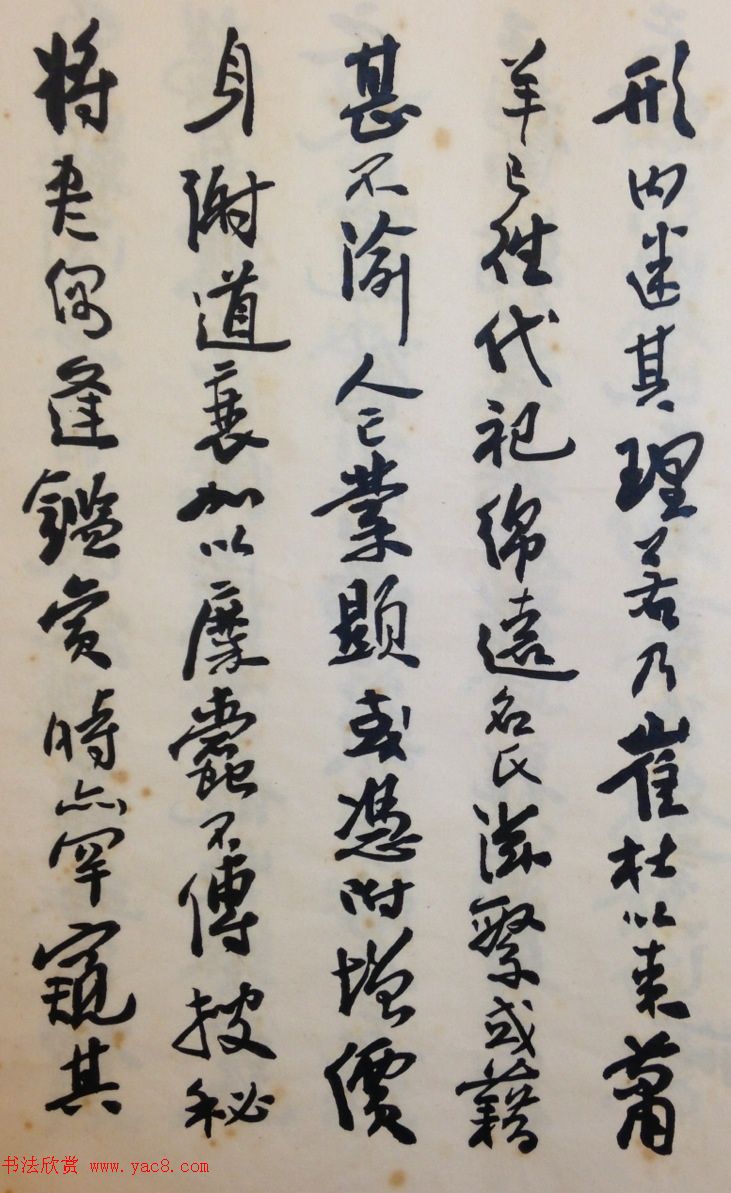 形內迷其理若乃崔杜以來蕭
羊已往代祀綿遠名氏滋繁或藉
甚不渝人亡業顯或憑附增價
身謝道衰加以糜蠹不傳搜秘
將盡偶逢鑑賞時亦罕窺其
书法欣赏 www.yac8.com